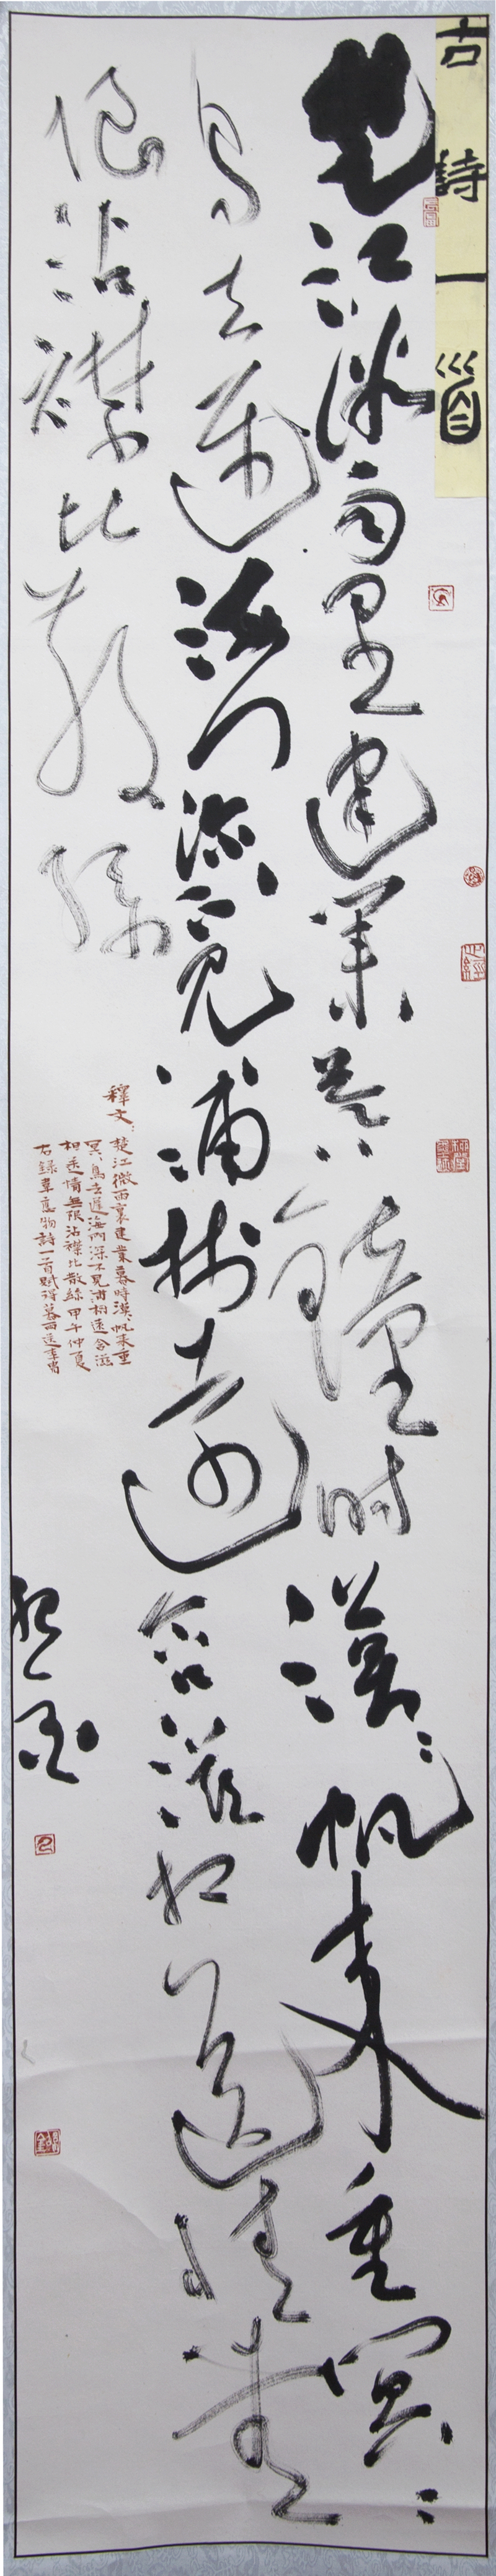 古詩一首
楚江微雨里建業暮鐘時漠〻帆來重冥〻
鳥去遲海門深不見浦樹遠含滋相送情無
限沾襟比散絲
釋文:
楚江微雨裏建業暮時漠〻帆來重
冥〻鳥去遲海門深不見浦樹遠含滋
相送情無限沾襟比散絲 甲午仲夏
右錄韋應物詩一首賦得暮雨送李胄